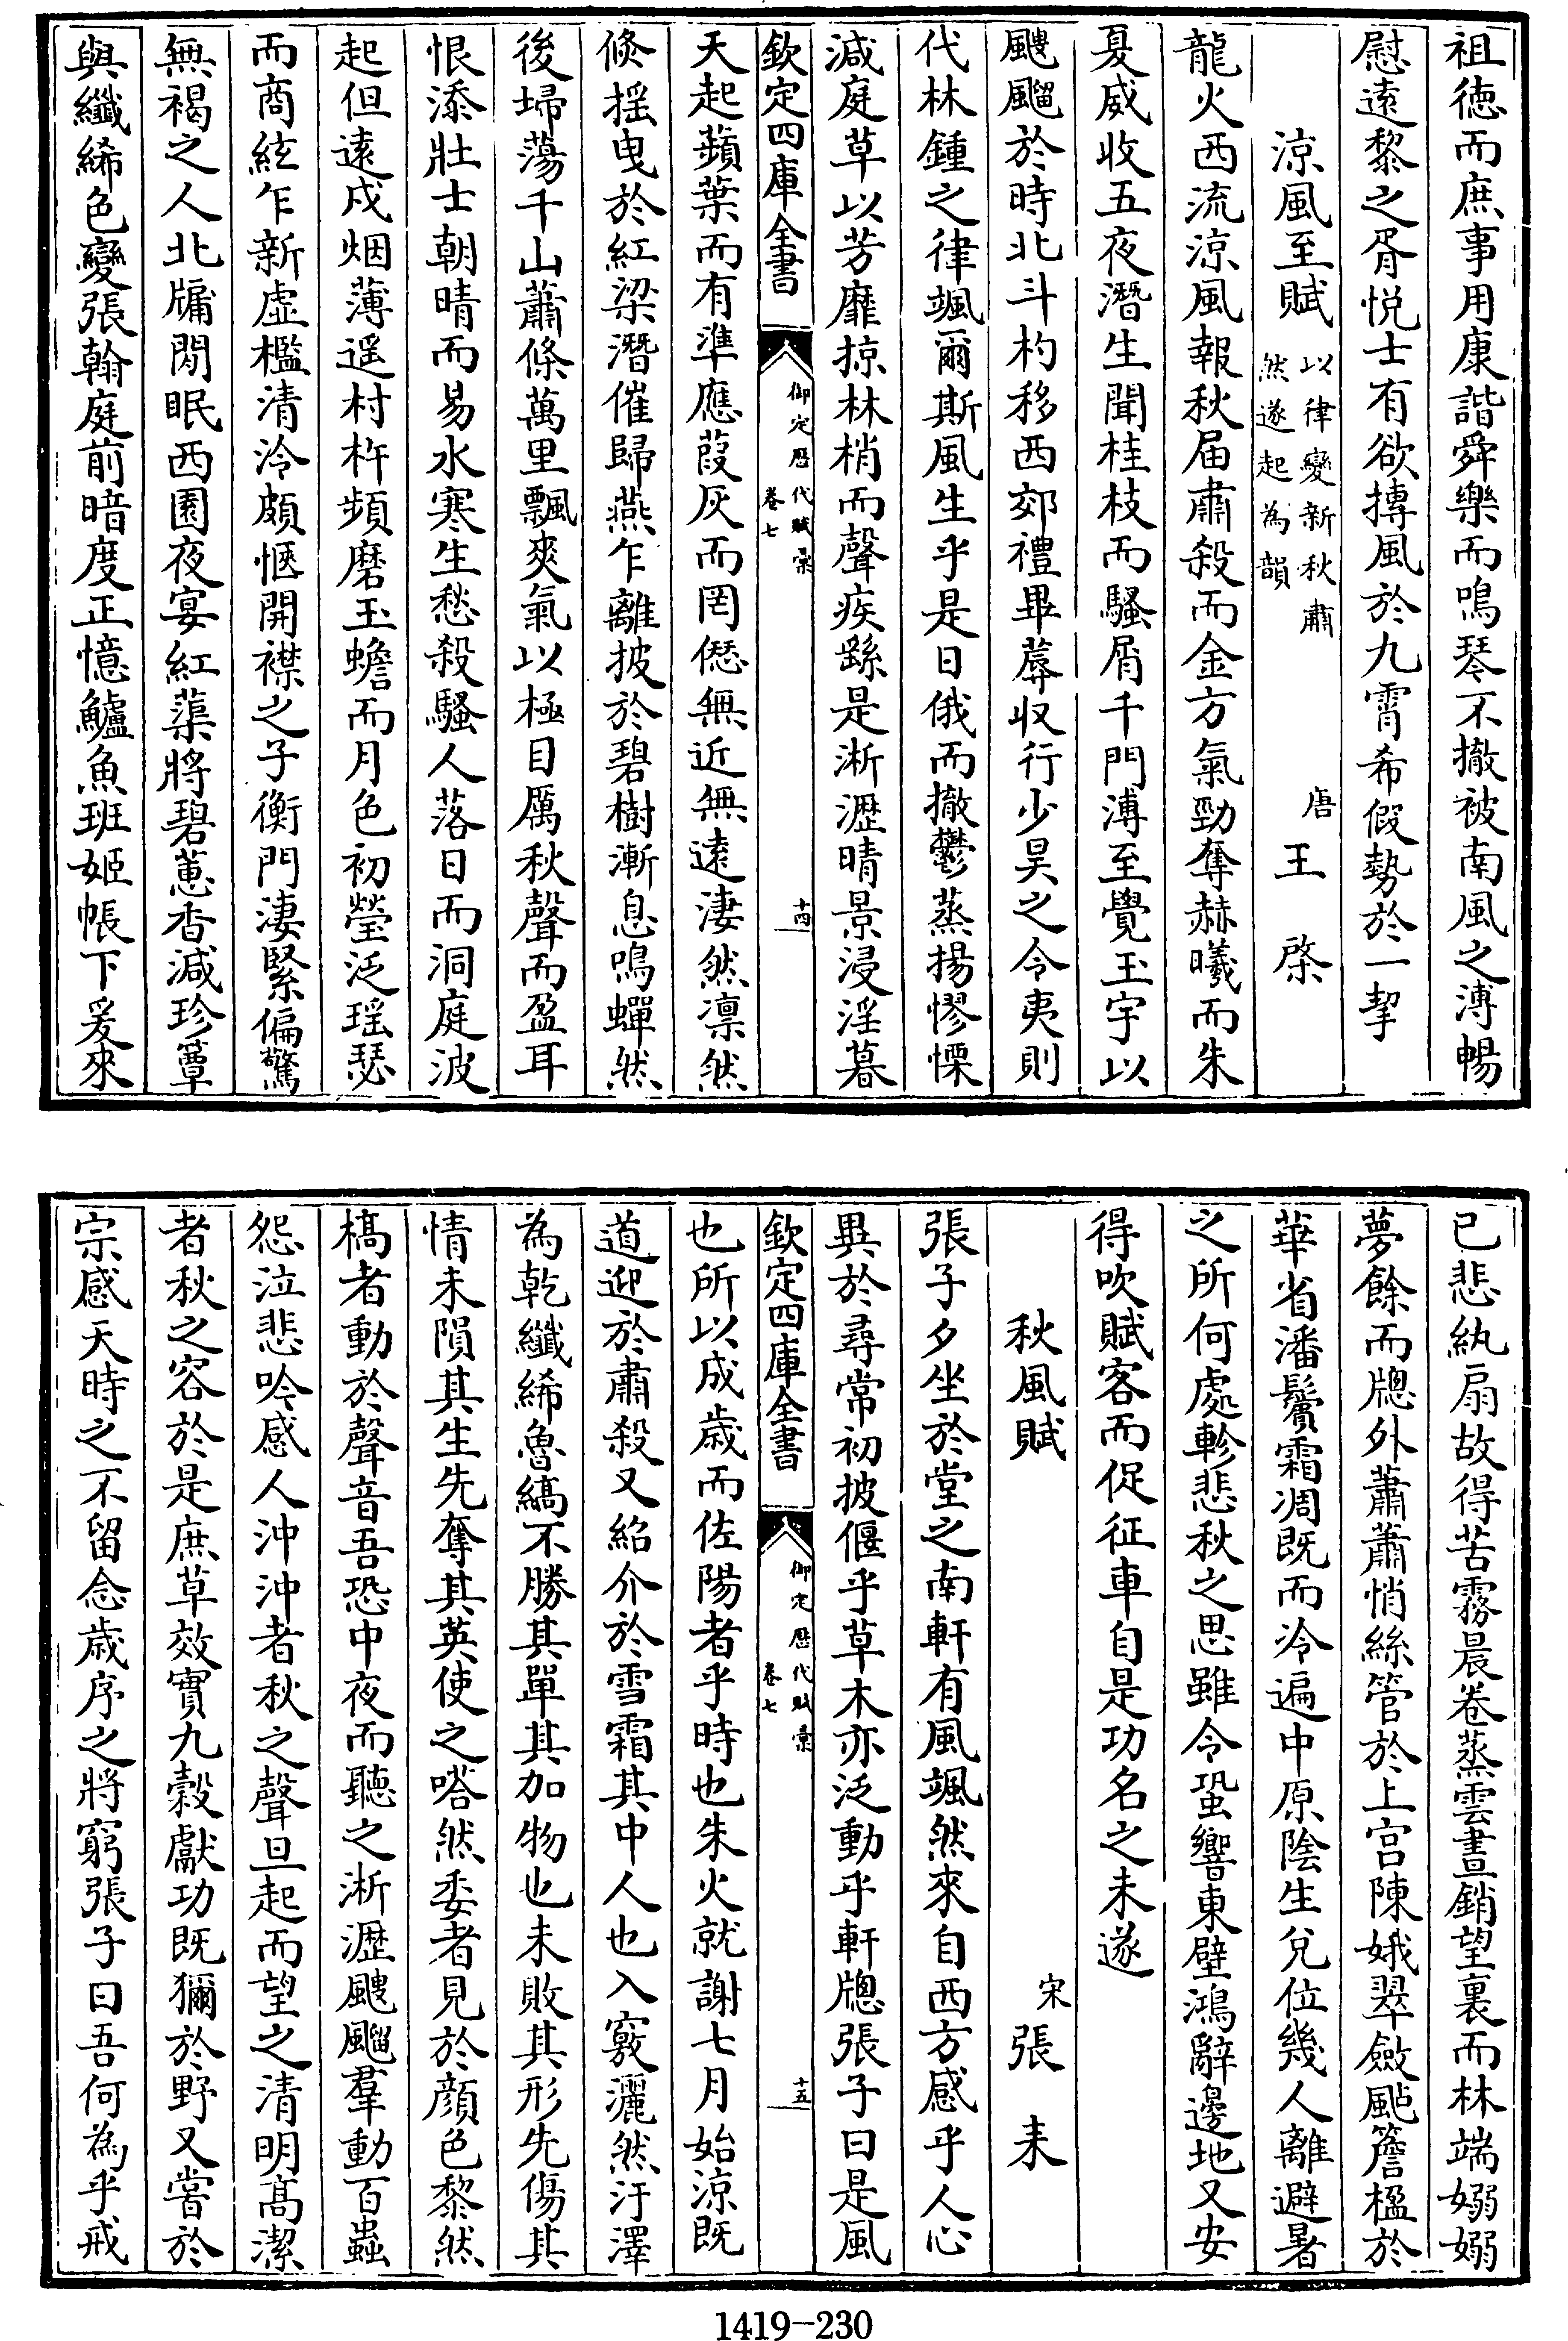 祖徳而庶事用康諧舜樂而鳴琴不撤被南風之溥暢
慰遠黎之胥悦士有欲摶風於九霄希假勢於一挈
涼風至賦以律變新秋肅然遂起為韻 唐王棨
龍火西流涼風報秋届肅殺而金方氣勁奪赫曦而朱
夏威收五夜潛生聞桂枝而騷屑千門溥至覺玉宇以
颼飀於時北斗杓移西郊禮畢蓐収行少昊之令夷則
代林鍾之律颯爾斯風生乎是日俄而撤鬱蒸揚憀慄
減庭草以芳靡掠林梢而聲疾繇是淅瀝晴景浸淫暮
欽定四庫全書 御定歴代賦彙 卷七 十四
天起蘋葉而有準應葭灰而罔愆無近無遠淒然凛然
倏揺曳於紅梁潛催歸燕乍離披於碧樹漸息鳴蟬然
後埽蕩千山蕭條萬里飄爽氣以極目厲秋聲而盈耳
恨添壯士朝晴而易水寒生愁殺騷人落日而洞庭波
起但遠戍烟薄遥村杵頻磨玉蟾而月色初瑩泛瑶瑟
而商絃乍新虚檻清泠頗愜開襟之子衡門淒緊偏驚
無褐之人北牖閒眠西園夜宴紅蕖將碧蕙香減珍簟
與纖絺色變張翰庭前暗度正憶鱸魚班姬帳下爰來
已悲紈扇故得苦霧晨卷蒸雲晝銷望裏而林端嫋嫋
夢餘而牕外蕭蕭悄絲管於上宫陳娥翠斂颭簷楹於
華省潘鬢霜凋既而泠遍中原陰生兌位幾人離避暑
之所何處軫悲秋之思雖令蛩響東壁鴻辭邊地又安
得吹賦客而促征車自是功名之未遂
秋風賦 宋張耒
張子夕坐於堂之南軒有風颯然來自西方感乎人心
異於尋常初披偃乎草木亦泛動乎軒牕張子曰是風
欽定四庫全書 御定歴代賦彙 卷七 十五
也所以成歳而佐陽者乎時也朱火就謝七月始涼既
道迎於肅殺又紹介於雪霜其中人也入竅灑然汙澤
為乾纖絺魯縞不勝其單其加物也未敗其形先傷其
情未隕其生先奪其英使之嗒然委者見於顔色黎然
槁者動於聲音吾恐中夜而聽之淅瀝颼飀羣動百蟲
怨泣悲吟感人沖沖者秋之聲旦起而望之清明髙潔
者秋之容於是庶草效實九穀獻功既獮於野又嘗於
宗感天時之不留念歳序之將窮張子曰吾何為乎戒
1419-230